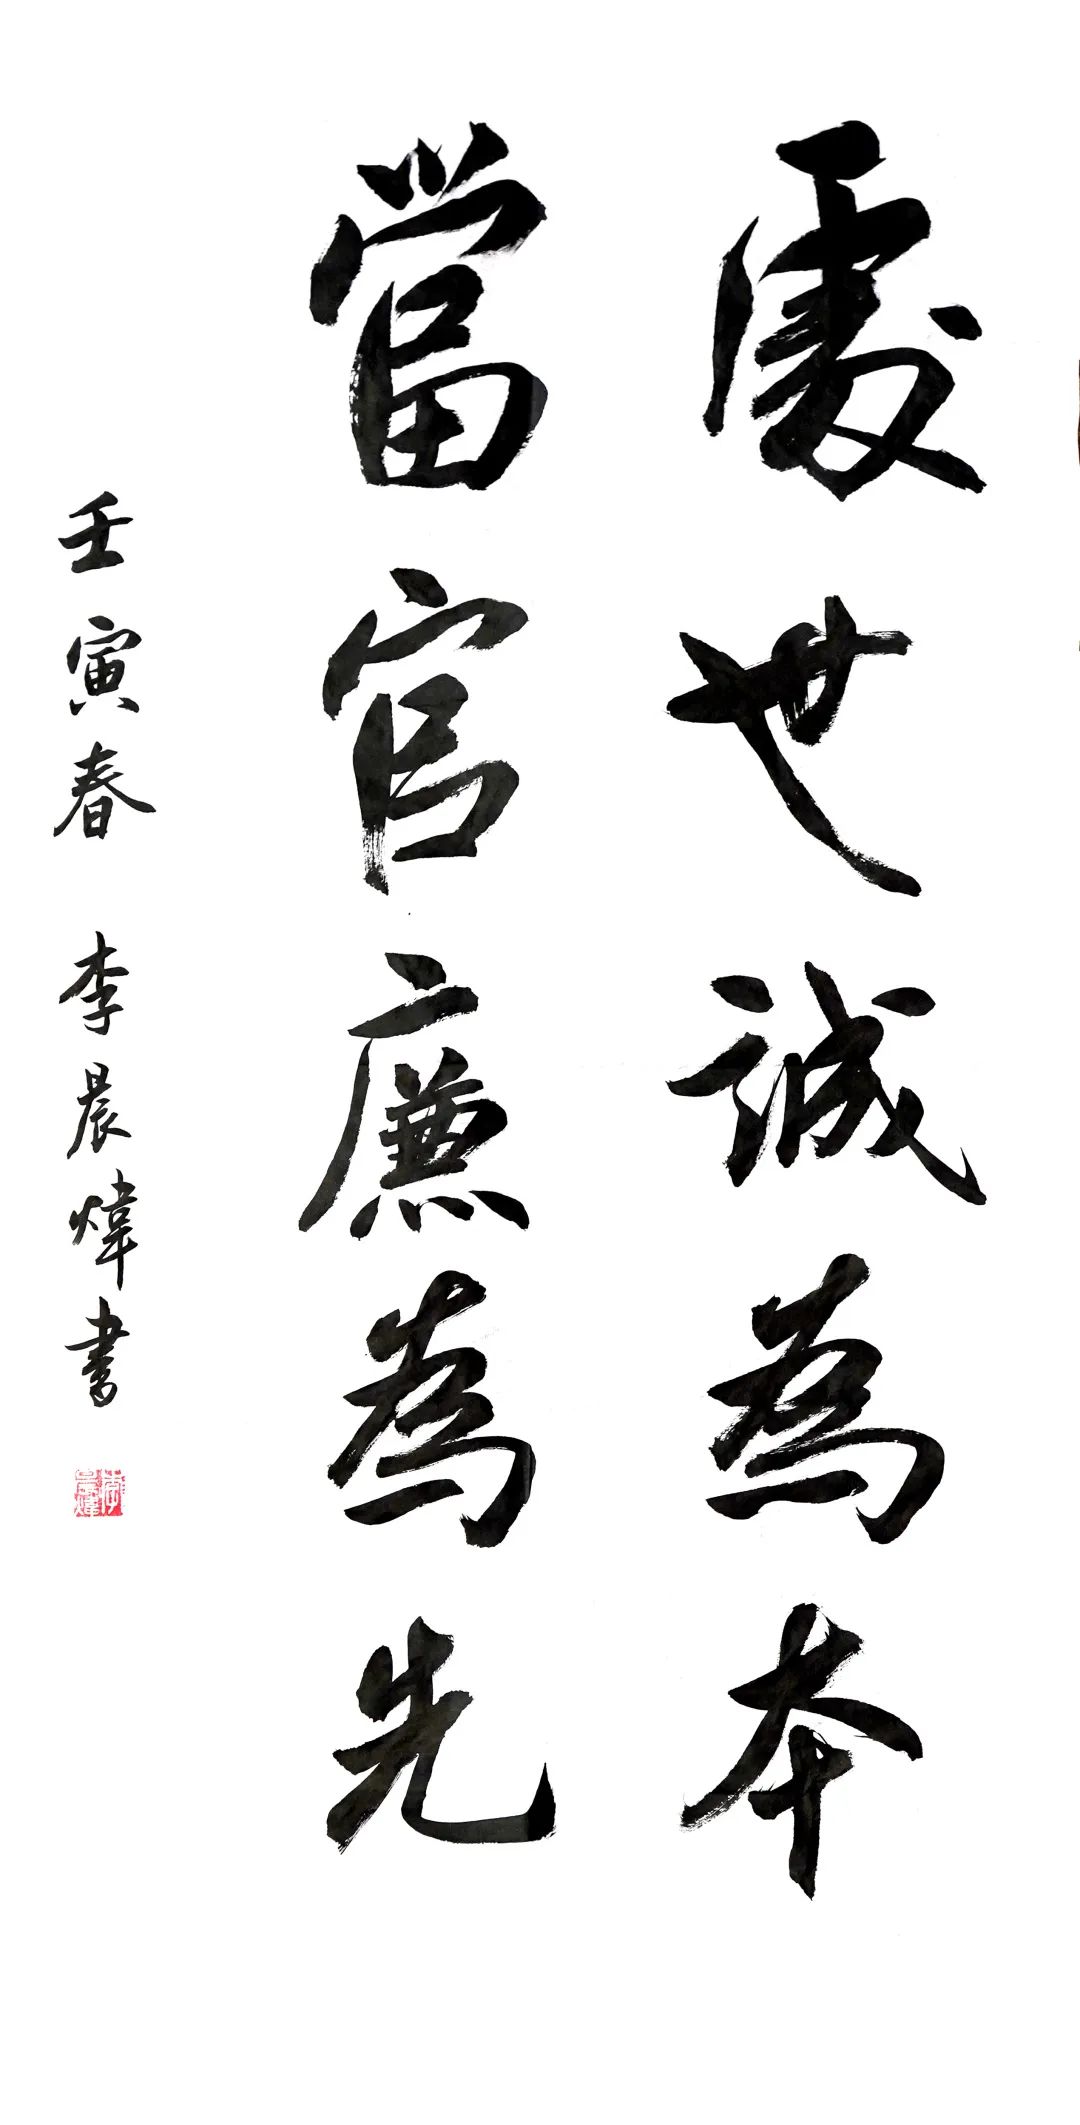 處世誠為本
當官廉為先
壬寅春 李晨煒書